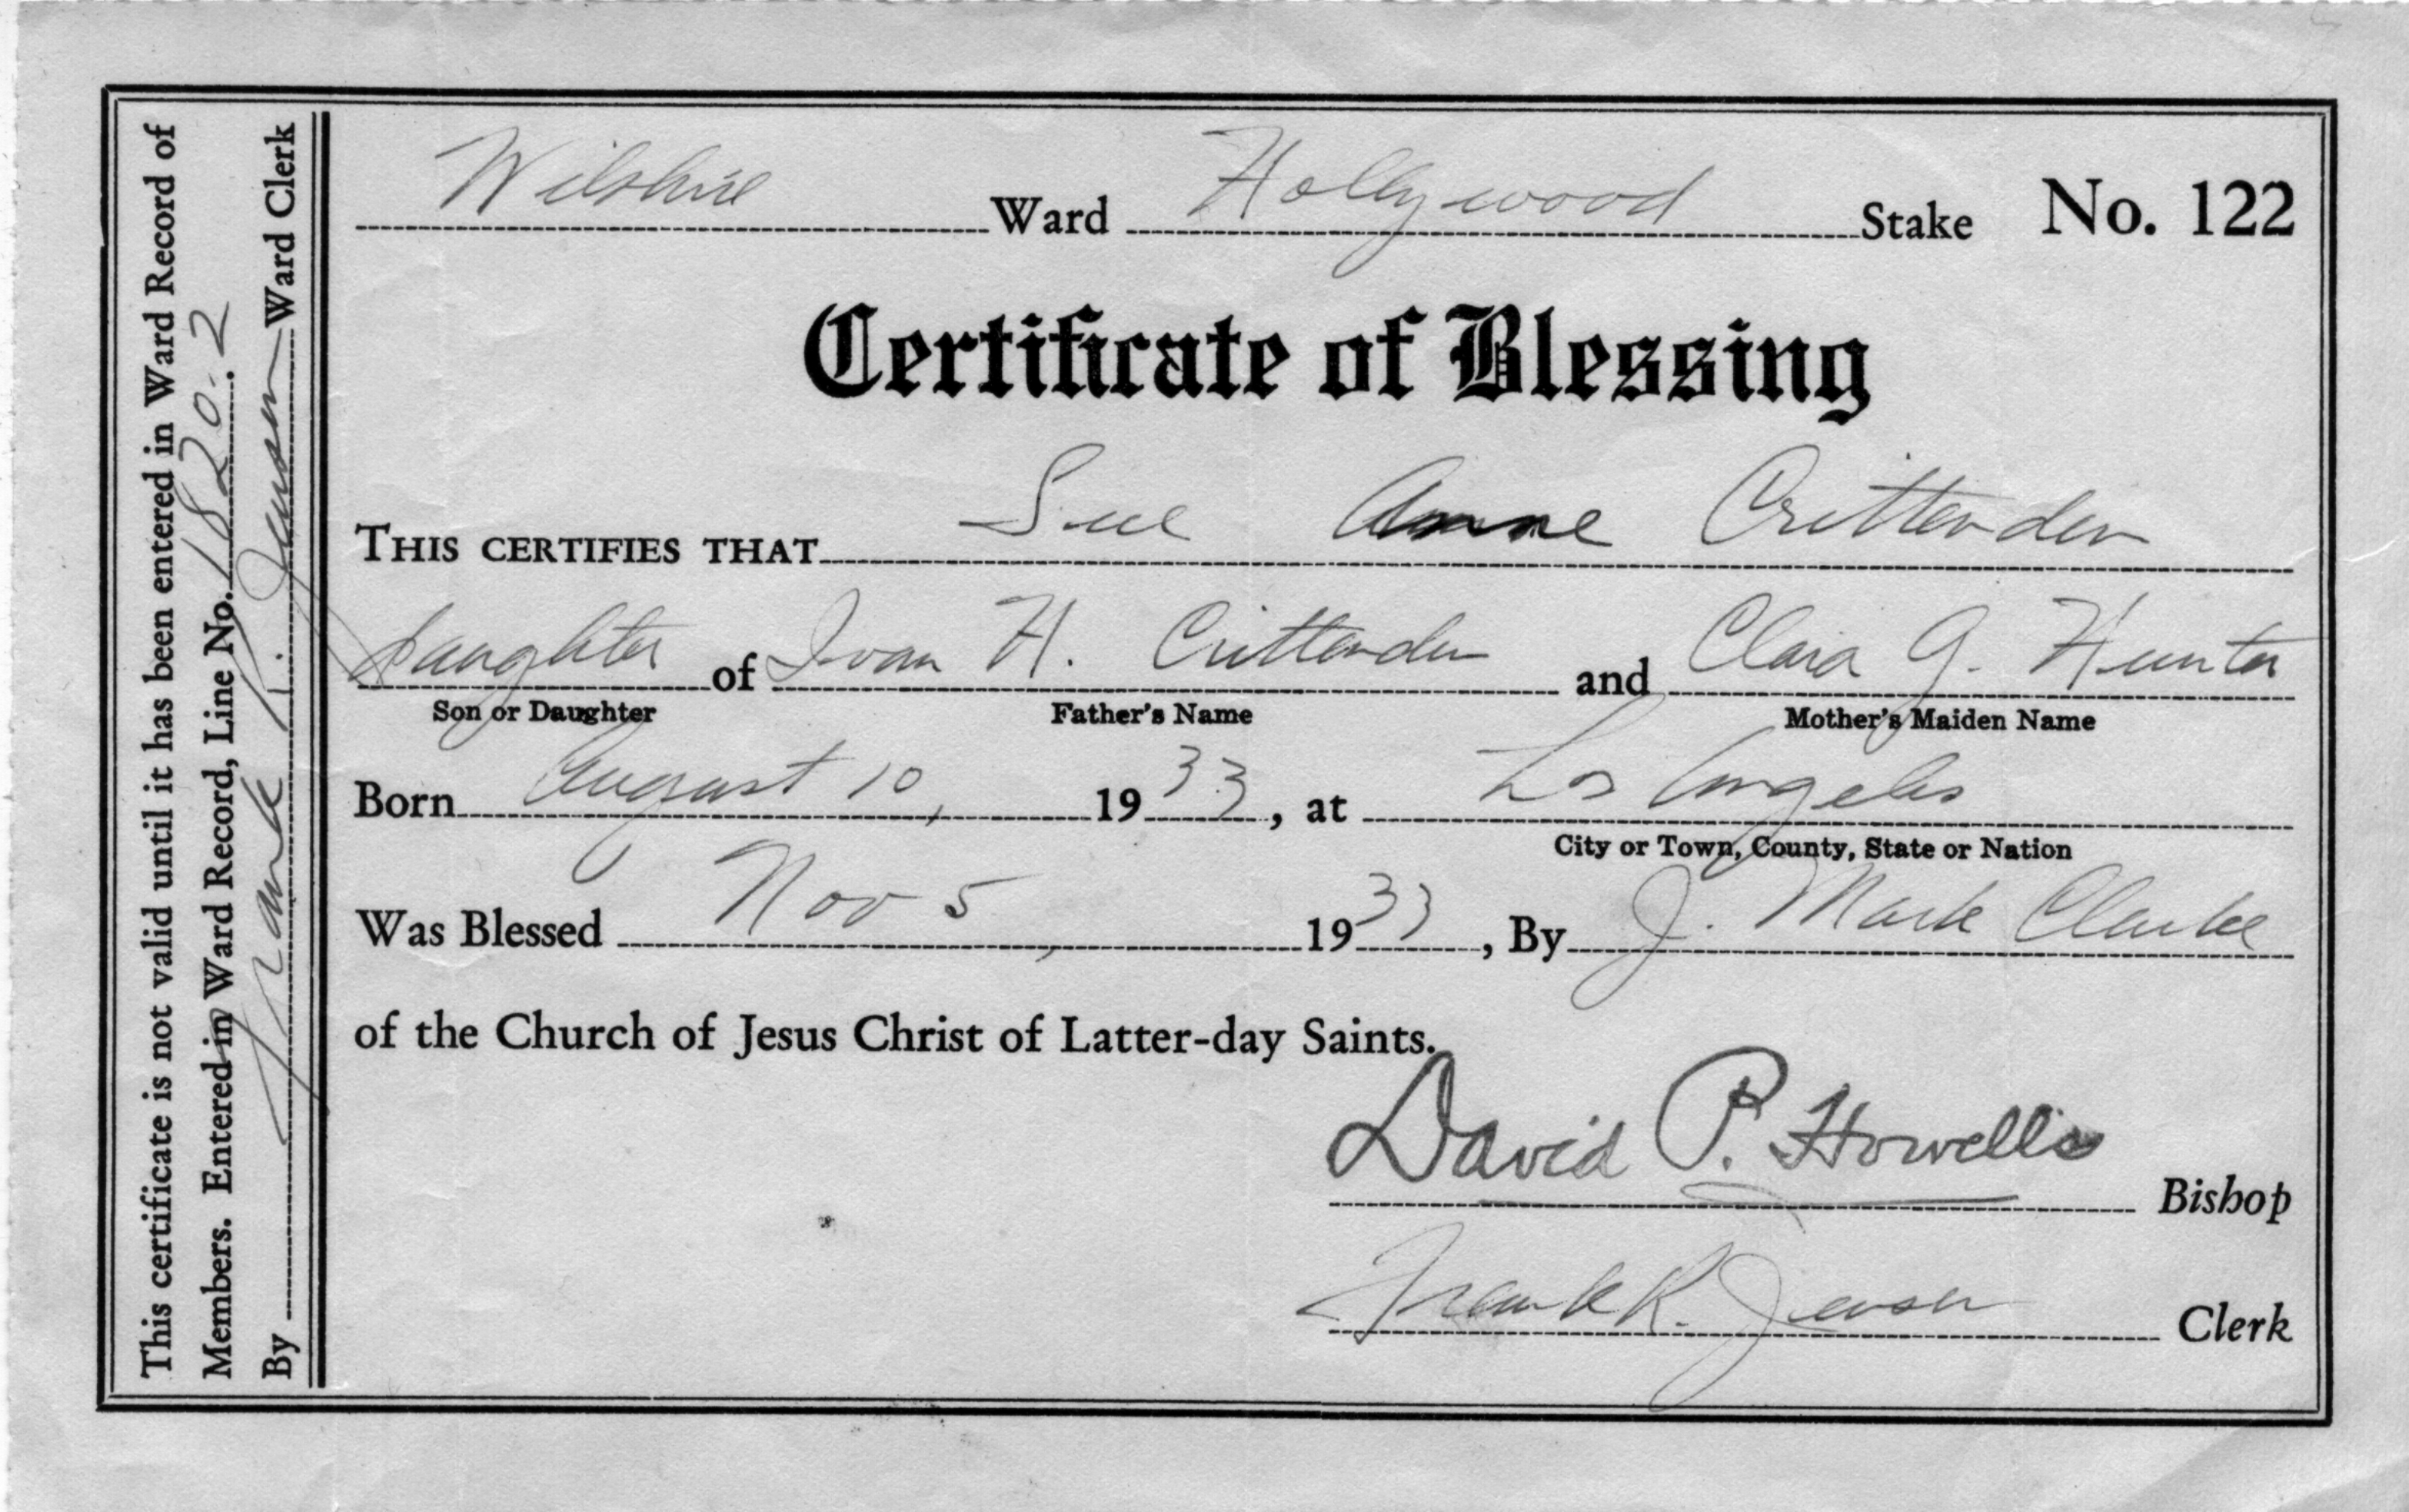 This certificate is not valid until it has been entered in Ward Record of
Members. Entered in Ward Record, Line No. 1820.2
By Frank R. Jensen Ward Clerk
Wilshire Ward Hollywood Stake No. 122
Certificate of Blessing
THIS CERTIFIES THAT Sue Anne Crittenden
daughter of Ivan H. Crittenden and Clara G. Hunter
Son or Daughter Father's Name Mother's Maiden Name
Born August 10, 1933, at Los Angeles
City or Town, County, State or Nation
Was Blessed Nov 5, 1933, By J. Mark Clarke
of the Church of Jesus Christ of Latter-day Saints.
David P. Howells Bishop
Frank R. Jensen Clerk